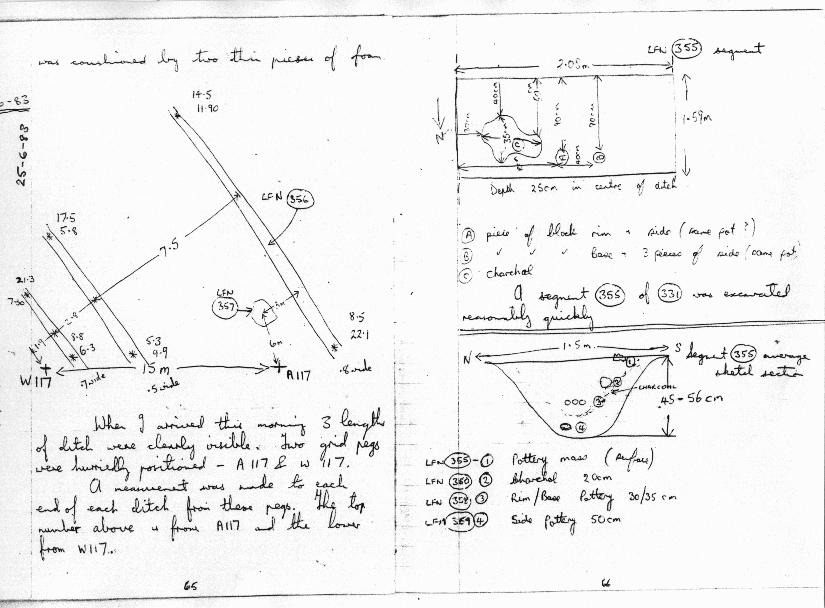 was cushioned by two thin pieces of foam
6-83
25-6-83
14.5
11.90
LFN 356
17.5
5.8
7.5
21.3
LFN
357
4m
6m
8.5
22.1
.8 wide
2.9
1.9
8.8
6.3
5.3
9.9
W117
.7 wide
15m
.5 wide
A117
When I arrived this morning 3 lengths
of ditch were clearly visible. Two grid pegs
were hurriedly positioned - A117 & W117.
A measurement was made to each
end of each ditch from these pegs. The top
number above is from A117 and the lower
from W117.
65
LFN 355 segment
2.08m
1.59m
N
40cm
35cm
90cm
70cm
40cm
A
B
C
Depth 25cm in centre of ditch
A piece of black rim + side (same pot?)
B " " " base + 3 pieces of side (same pot)
C charchol
A segment 355 of 331 was excavated
reasonably quickly
N
1.5m
S
Segment 355 average
sketch section
1
2
CHARCOAL
3
4
45-56cm
LFN 355 - 1 Pottery mass (surface)
LFN 360 2 Charchol 20cm
LFN 358 3 Rim/Base Pottery 30/35cm
LFN 359 4 Side Pottery 50cm
66